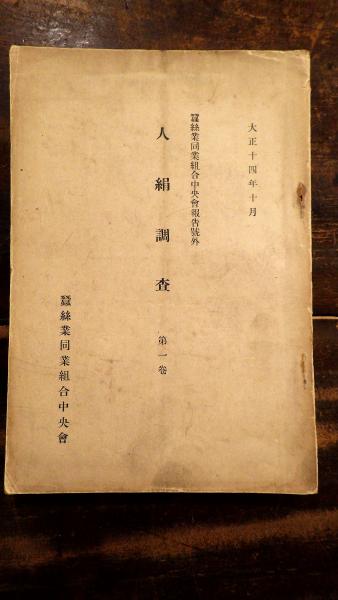 大正十四年十月
蠶絲業同業組合中央會報告號外
人絹調査 第一卷
蠶絲業同業組合中央會